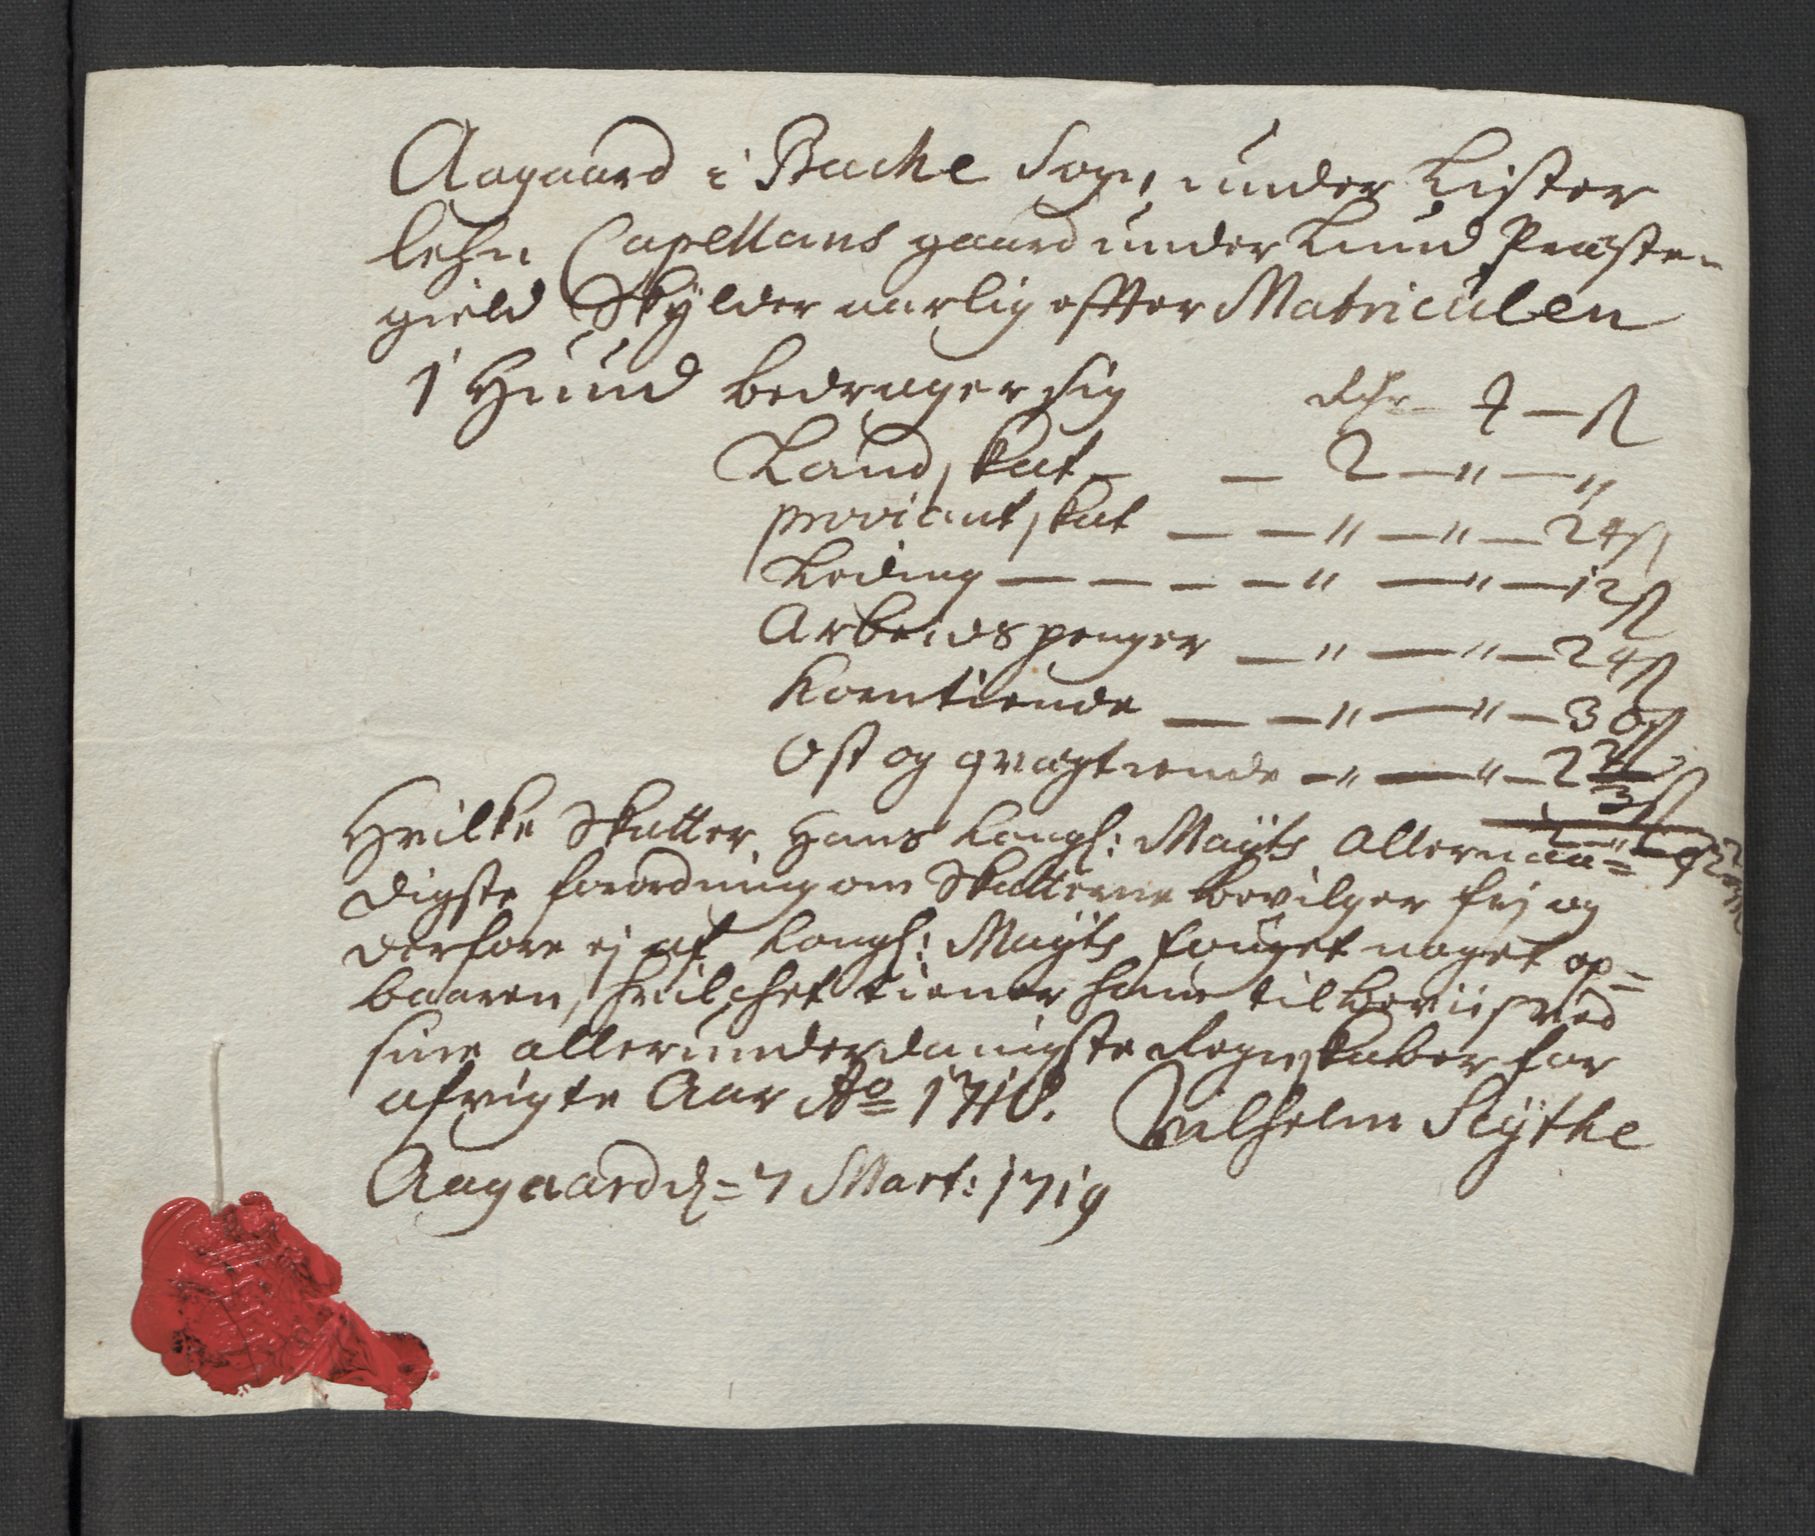 Aagaard i Bache Sogn, under Lister
lehn Capellans gaard under Lund Præste-
gield Skylder aarlig effter Matriculen
1 Huud bedrager sig Rdr – ₰ – ß
Land skat – – 2 – " – "
proviant skat – – " – " – 24 ß
Leding – – – – " – " – 12 ß
Arbeids penger – " – " – 24 ß
Korntiende – – " – " – 36 ß
Ost og qvægtiende – " – " – 22 2/3 ß
Hvilke Skatter Hans Kongl: Mayts Allernaa=
digste forordning om Skatterne bevilger frj og
derfore ej af Kongl: Mayts fouget noget op=
baaren, hvilchet tiener ham til beviis ved
sine allerunderdanigste Regnskaber for
afvigte Aar Ao 1718.
Vilhelm Scÿthe
Aagaard d = 7 Mart: 1719